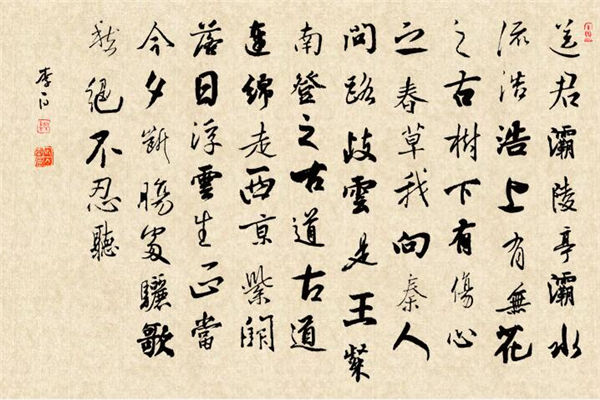 送君灞陵亭灞水
流浩浩上有無花
之古樹下有傷心
之春草我向秦人
問路歧雲是王粲
南登之古道古道
連綿走西京紫闕
落日浮雲生正當
今夕斷腸處驪歌
愁絕不忍聽
李白